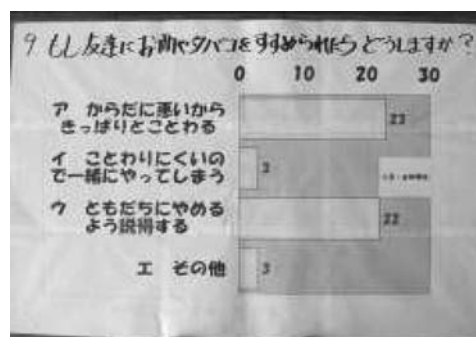 9 もし友達にお酒やタバコをすすめられたらどうしますか?
0 10 20 30
ア からだに悪いから
きっぱりとことわる
23
イ ことわりにくいの
で一緒にやってしまう
3
ウ ともだちにやめる
よう説得する
22
エ その他
3